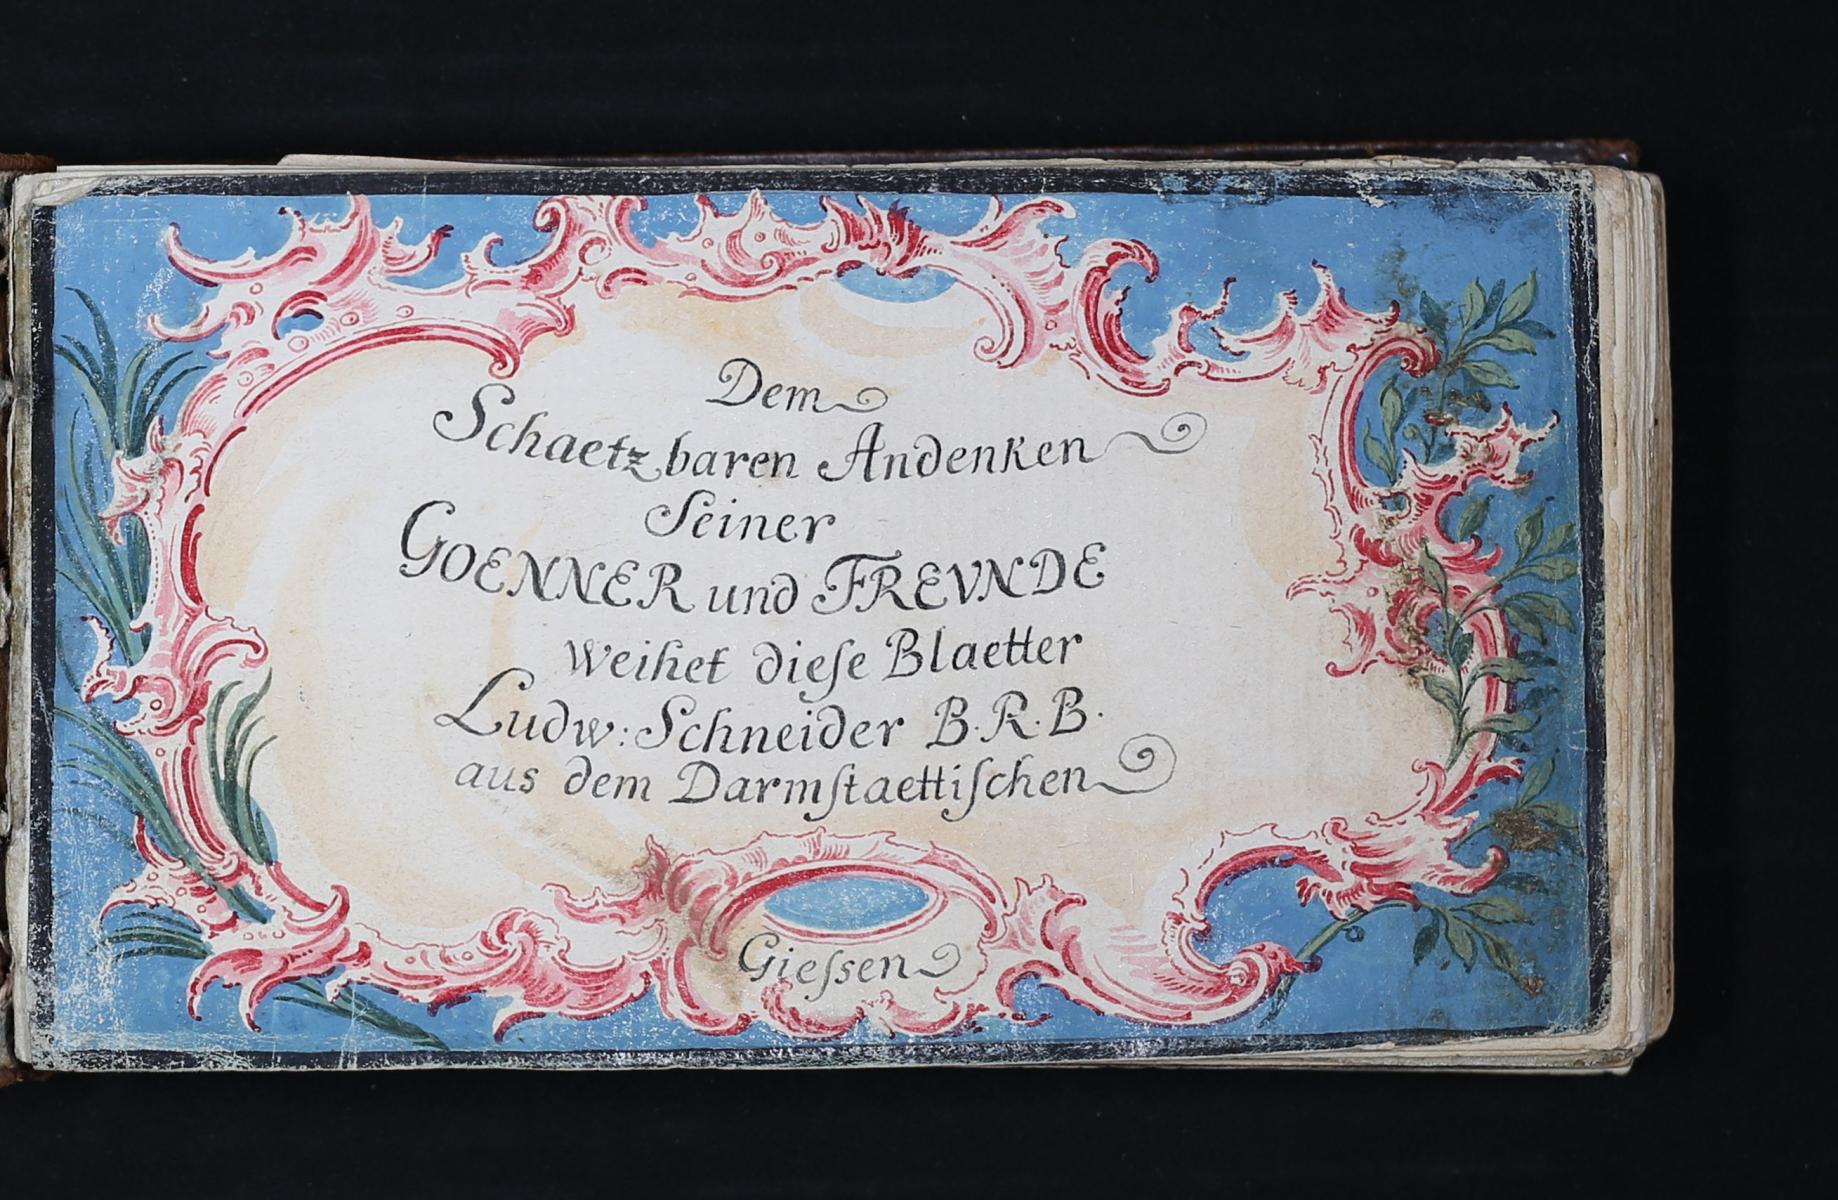 Dem
Schaetzbaren Andenken
Seiner
GOENNER und FREVNDE
weihet dieſe Blaetter
Ludw: Schneider B. R. B.
aus dem Darmſtaettiſchen
Gieſsen